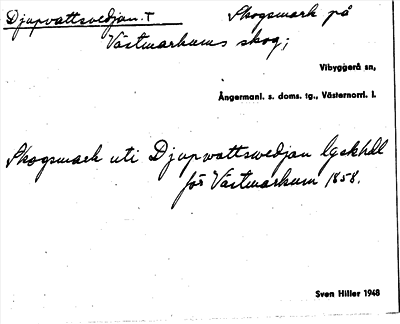 Djupvattsvedjan. T Skogsmark på
Västmarkums skog;
Vibyggerå sn,
Ångermanl. s. doms. tg., Västernorrl. l.
Skogsmark uti Djupvattswedjan
för Västmarkum 1858.
Sven Hiller 1948